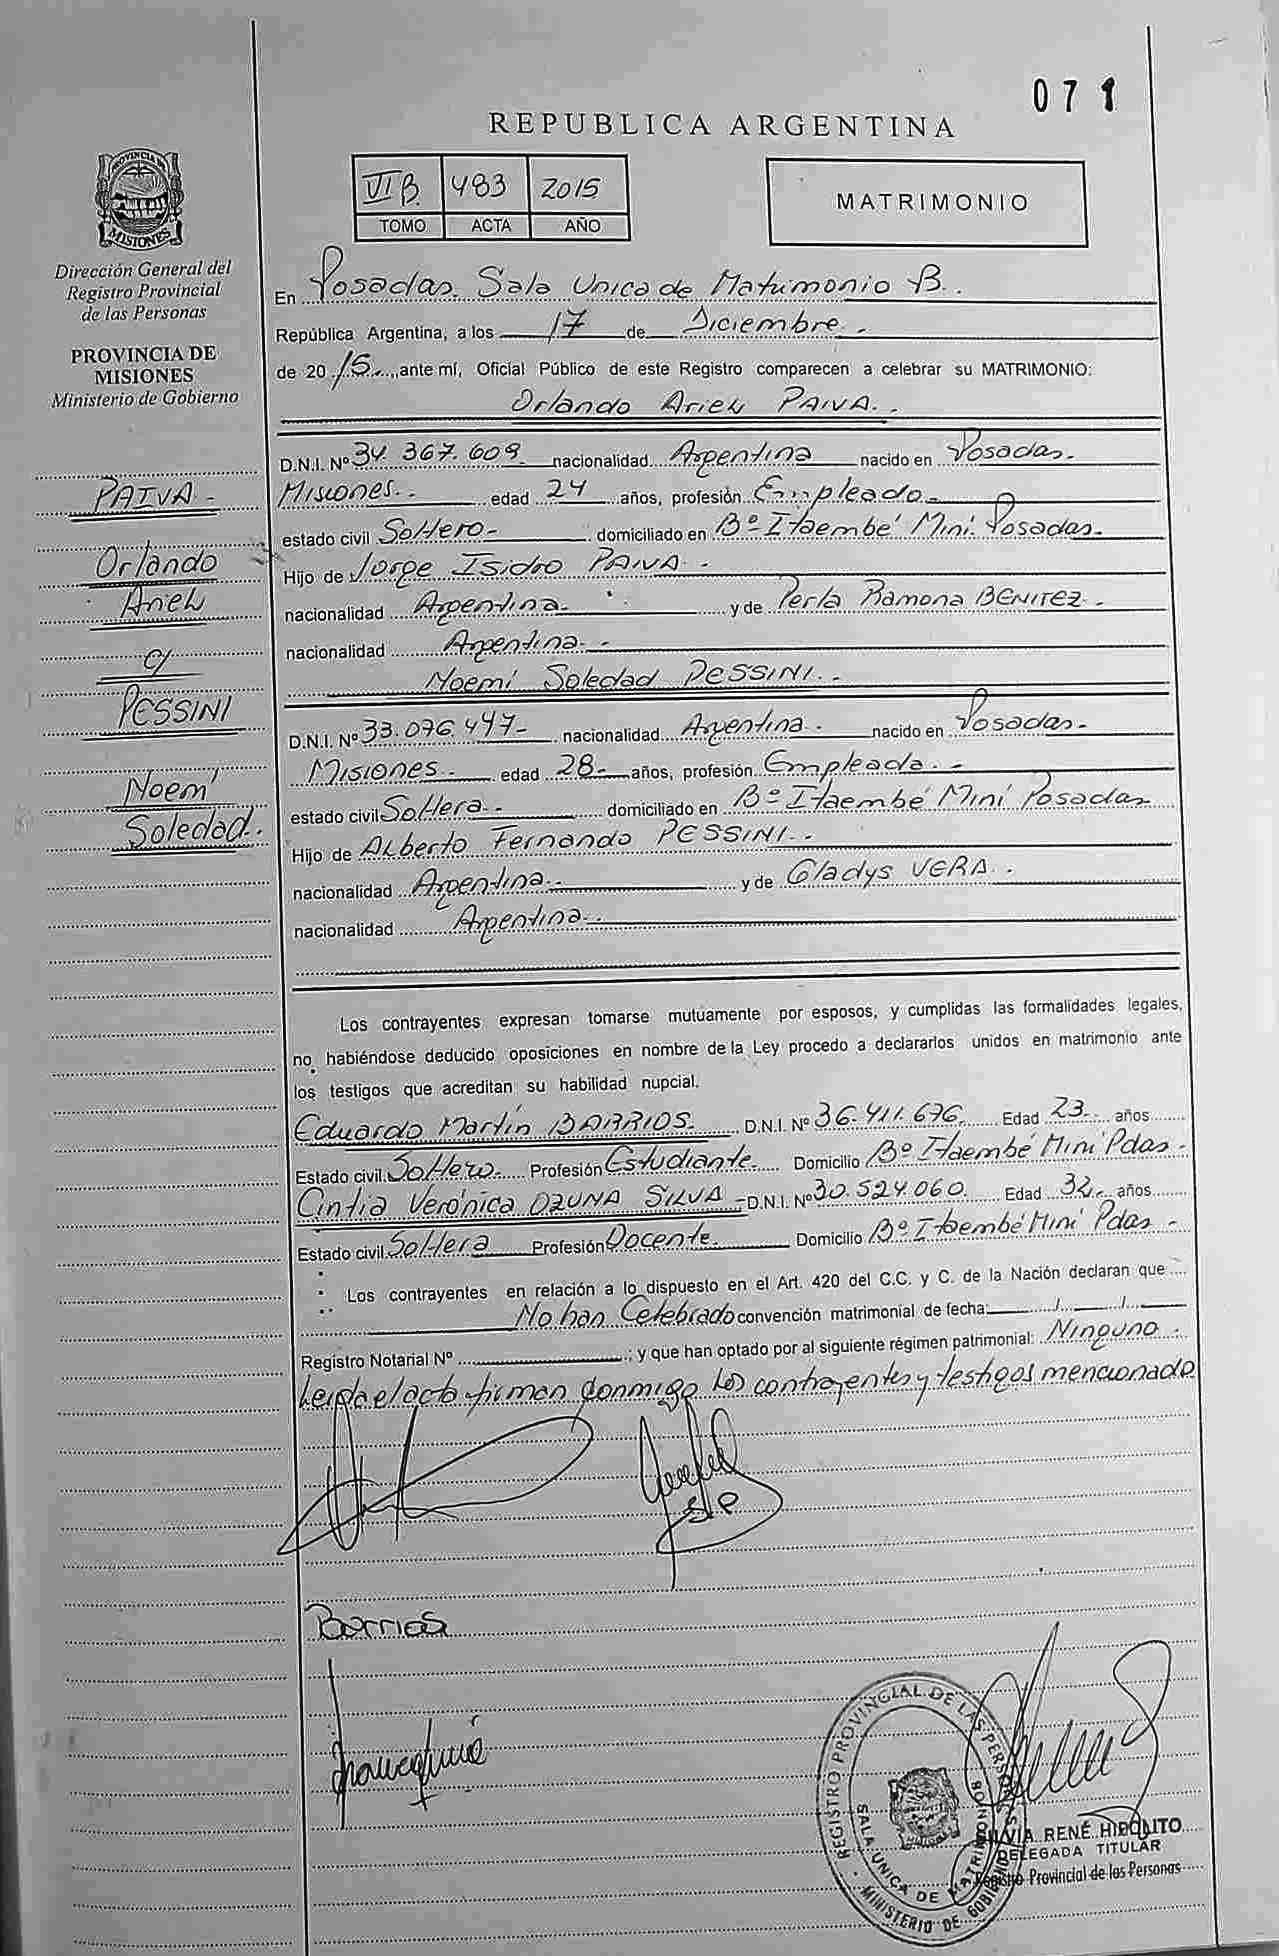 071
REPUBLICA ARGENTINA
VI B. 483 2015
TOMO ACTA AÑO
MATRIMONIO
PROVINCIA DE
MISIONES
Dirección General del
Registro Provincial
de las Personas
PROVINCIA DE
MISIONES
Ministerio de Gobierno
PAIVA -
Orlando
Ariel
c/
PESSINI
Noemí
Soledad.
En Posadas. Sala Unica de Matrimonio B..
República Argentina, a los 17 de Diciembre.
de 2015., ante mí, Oficial Público de este Registro comparecen a celebrar su MATRIMONIO:
Orlando Ariel PAIVA..
D.N.I. Nº 34.367.609 nacionalidad Argentina nacido en Posadas-
Misiones.- edad 24 años, profesión Empleado-
estado civil Soltero- domiciliado en Bº Itaembé Miní. Posadas.
Hijo de Jorge Isidro PAIVA.
nacionalidad Argentina. y de Perla Ramona BENITEZ.
nacionalidad Argentina.-
Noemí Soledad PESSINI..
D.N.I. Nº 33.076.447- nacionalidad Argentina. nacido en Posadas-
Misiones.- edad 28- años, profesión Empleada.-
estado civil Soltera.- domiciliado en Bº Itaembé Miní Posadas
Hijo de Alberto Fernando PESSINI..
nacionalidad Argentina. y de Gladys VERA..
nacionalidad Argentina..
Los contrayentes expresan tomarse mutuamente por esposos, y cumplidas las formalidades legales,
no habiéndose deducido oposiciones en nombre de la Ley procedo a declararlos unidos en matrimonio ante
los testigos que acreditan su habilidad nupcial.
Eduardo Martín BARRIOS. D.N.I. Nº 36.411.676. Edad 23. años
Estado civil Soltero. Profesión Estudiante. Domicilio Bº Itaembé Miní Pdas.
Cintia Verónica OZUNA SILVA - D.N.I. Nº 30.524.060. Edad 32. años
Estado civil Soltera Profesión Docente. Domicilio Bº Itaembé Miní Pdas-
Los contrayentes en relación a lo dispuesto en el Art. 420 del C.C. y C. de la Nación declaran que
No han Celebrado convención matrimonial de fecha: / /
Registro Notarial Nº ; y que han optado por al siguiente régimen patrimonial: Ninguno.
Leída el acta firman conmigo los contrayentes y testigos mencionado
Barrios
REGISTRO PROVINCIAL DE LAS PERSONAS
SALA UNICA DE MATRIMONIO B
MINISTERIO DE GOBIERNO
RENÉ HIPOLITO
DELEGADA TITULAR
Registro Provincial de las Personas